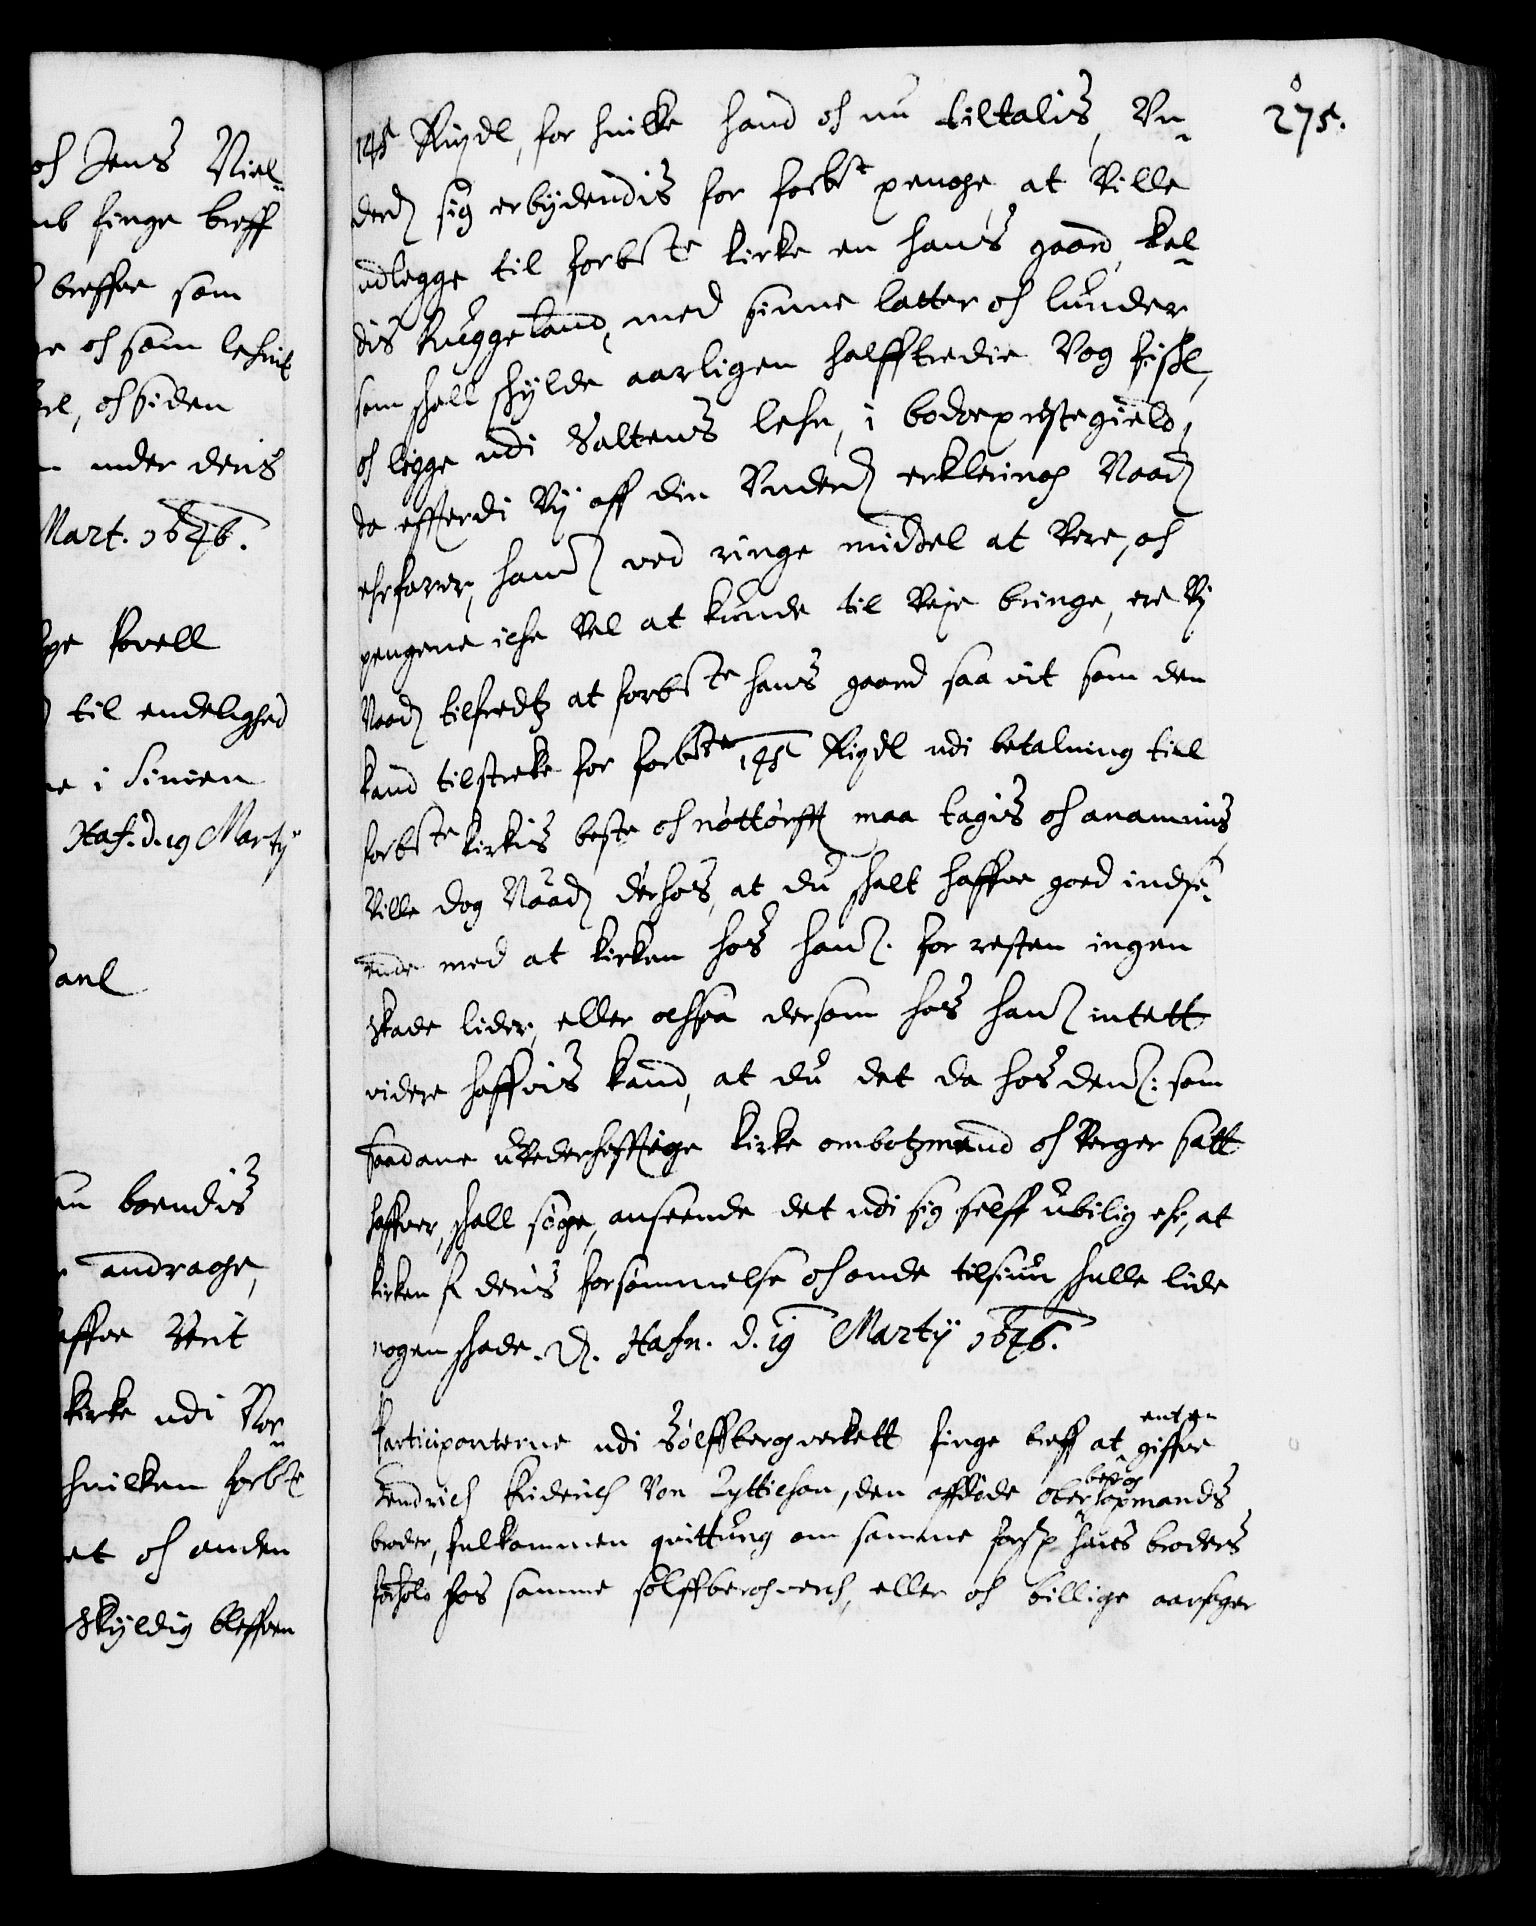 och Jens Niel-
finge breff
breffue som
och som lehnit
och siden
under deris
Mart. 1646.
Povell
til endelighed
i Sinien
Hafn. d. 19 Martij
boendis
andrage,
haffue Verit
kirke udi Nor-
huilken forbte
et och anden
skyldig bleffuen
275.
145 Rigdl, for huilke hand och nu tiltalis, Un-
derd. sig erbydendis for forbte penge at Ville
udlegge til forbte kirke en hans gaard, kal-
dis Ruggeland, med sinne latter och lunder
som shall shylde aarligen halfftredie Vog fishe,
och ligge udi Saltens lehn, i bodøe prestegield,
da effterdi Vy aff din Underd. erklering Naad.
ehrfarer, hand ved ringe middel at Vere, och
pengene iche Vel at kunde til Veje bringe, ere Vj
Naad. tilfredtz at forbte hans gaard saa vit som den
kand tilstreke for forbte 145 Rigdl udi betalning till
forbte kirkis beste och nøttørfft maa tagis och anammis
Ville dog Naad. derhos, at du shalt haffue goed indse-
ende med at kirken hos hand. for resten ingen
skade lider, eller ochsaa dersom hos hand intett
videre haffuis kand, at du det da hos dend: som
saadane uVederhefftige kirke ombotzmend och Verger satt
haffuer, shall søge, anseende det udi sig selff ubilig ehr, at
kirken f deris forsømmelse och onde tilsiun shulle lide
nogen shade. D. Hafn. d. 19 Martij 1646.
Participanterne udi Sølffbergverkett finge breff at enten giffue
Hendrich friderich Von Lyttichau, den affdøde Ober berg hopmands
broder, fulkommen quittung om samme forsp hans broders
forhold hos samme sølffbergverch, eller och billige aarsager